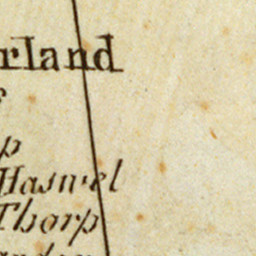 rland
p
Haswel
Thorp